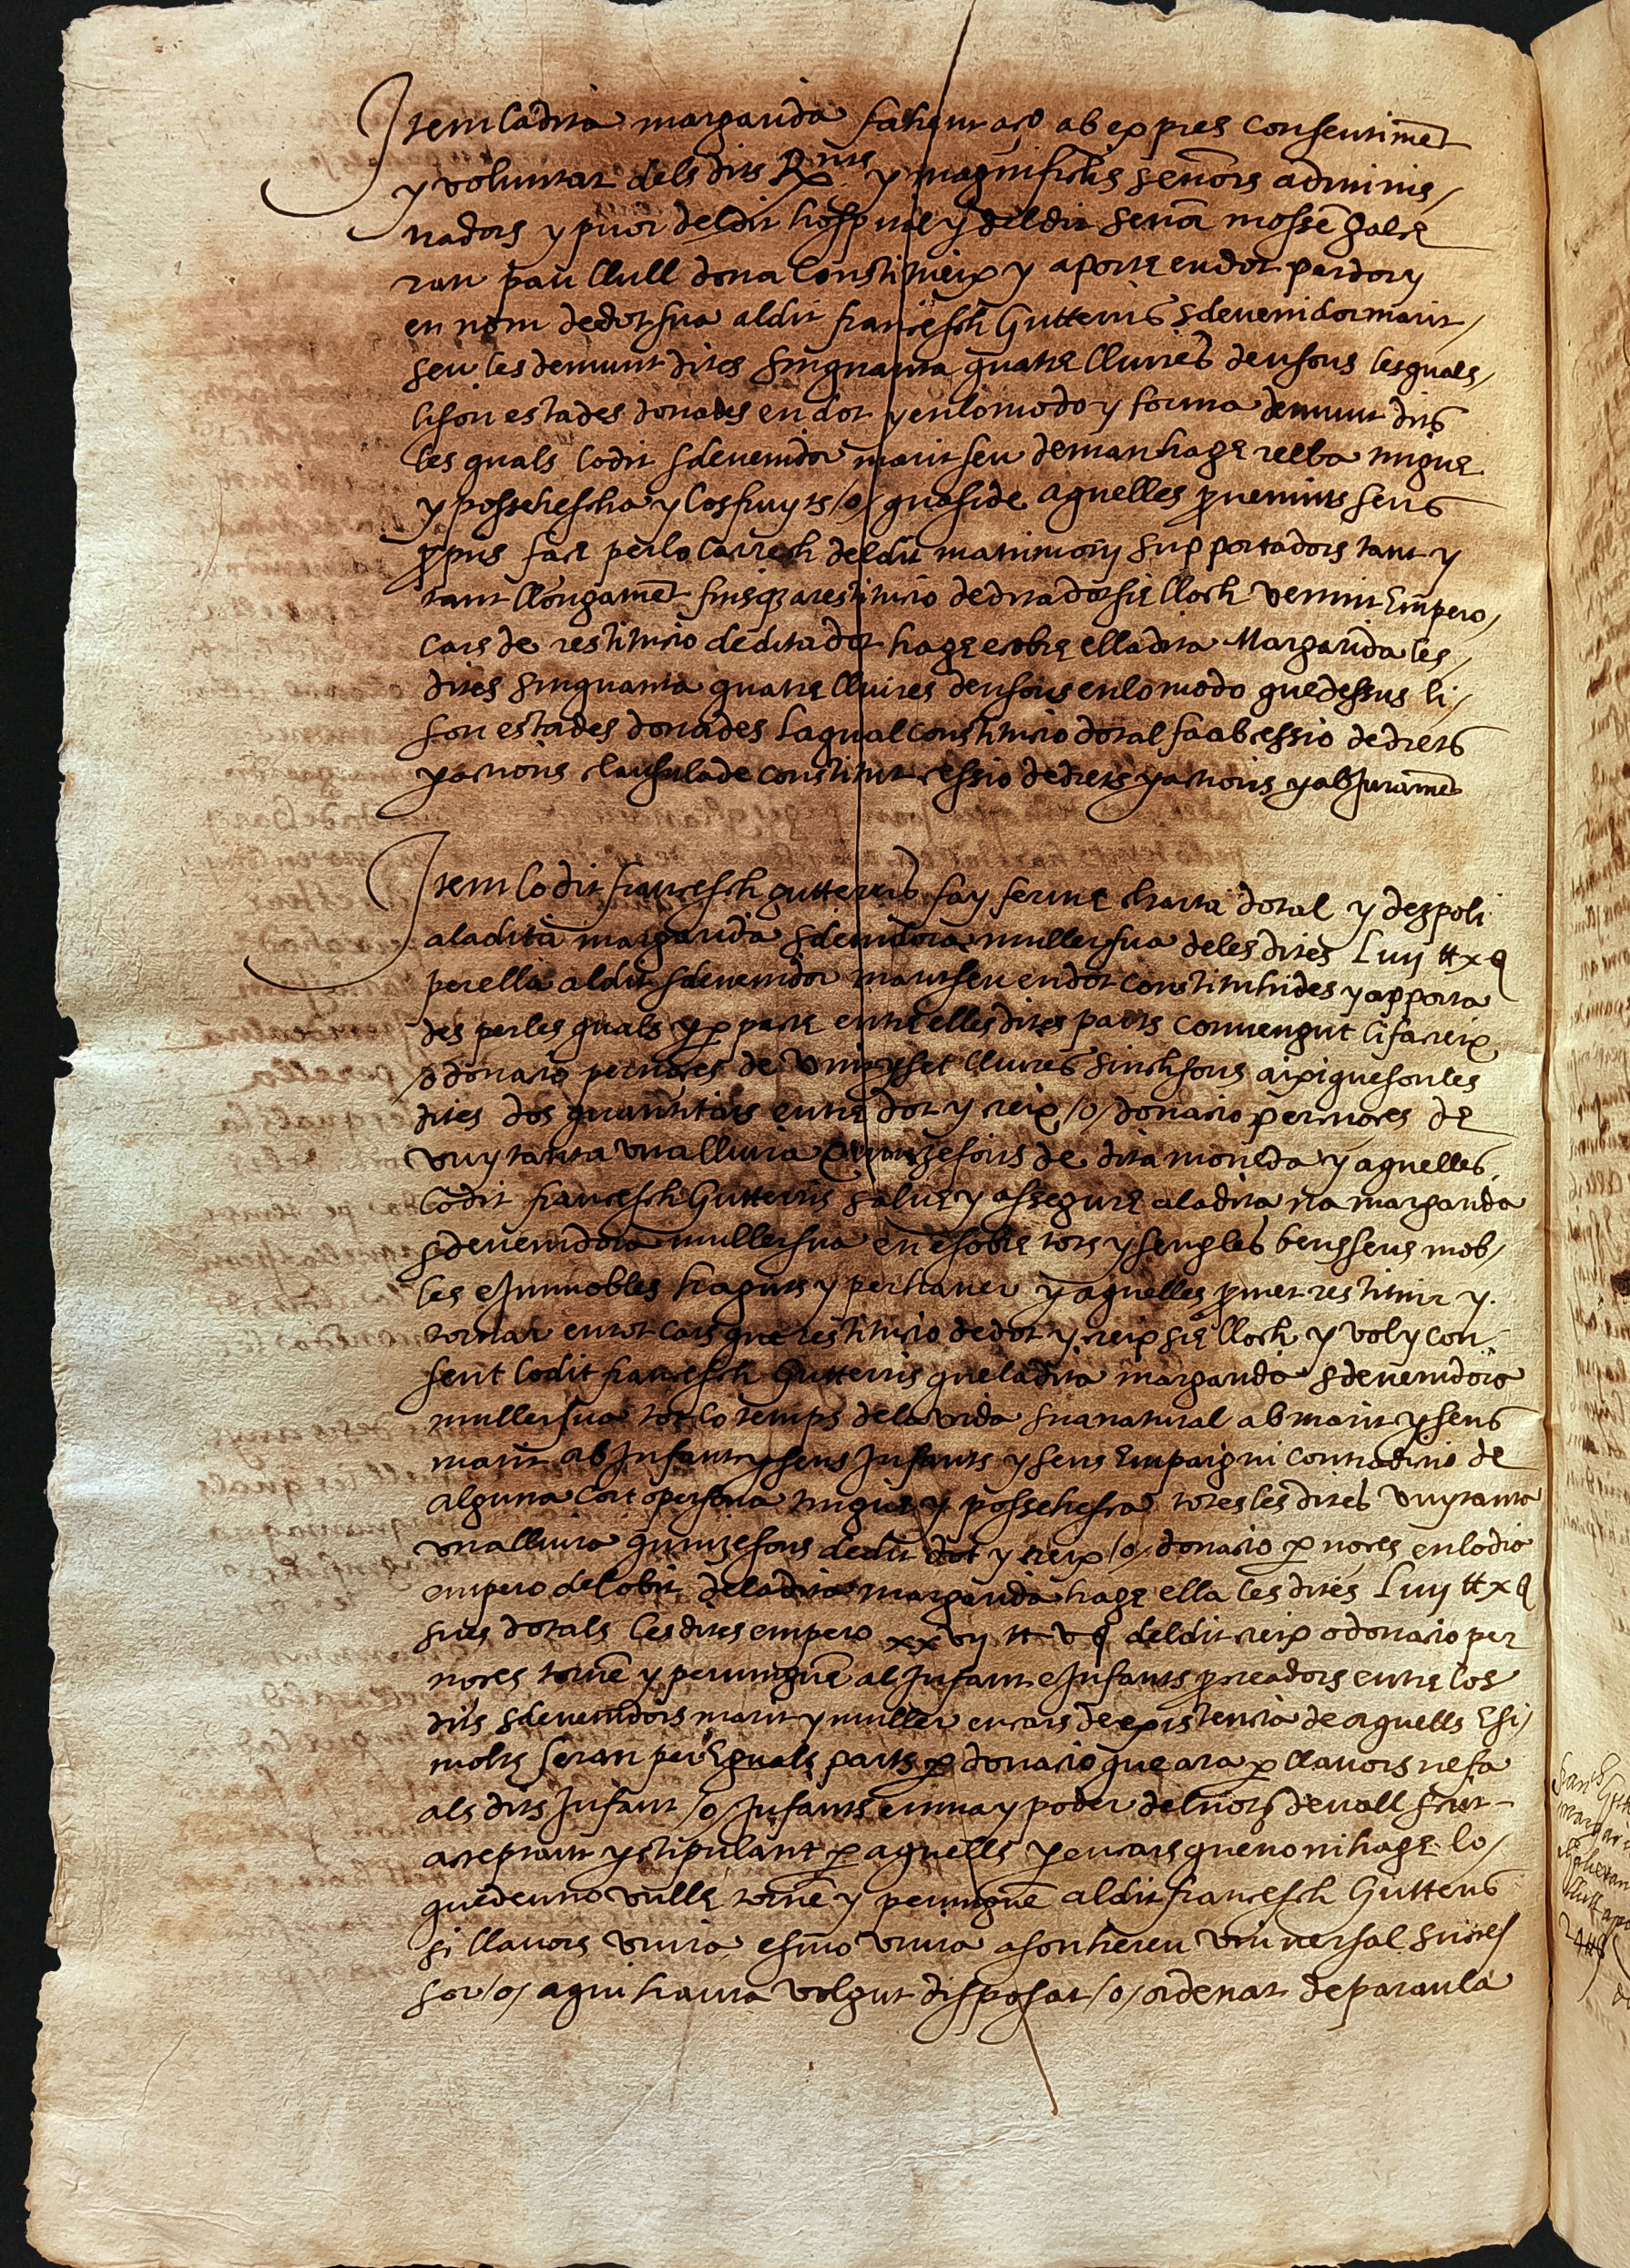 Item la dita margarida fahent aço ab expres consentimẽt
y voluntat dels dits Rx.nts y magnifichs señors adminis/
tradors y prior del dit hospital y del dit señor mossẽ Galce
ran pau llull dona Constitueix y aporte en dot per dot y
en nom de dot sua al dit francesch Gutteriis sdevenidor marit/
seu les demunt dites sinquanta quatre lliures den sous les quals/
li son estades donades en dot y en lo modo y forma demunt dits
les quals lo dit sdevenidor marit seu deman hage reba tingue
y possehescha y los fruyts /o/ quaside aquelles provenints seus
propis face per lo carrech del dit matrimoni supportadors tant y
tant llongamẽt fins q̃ a restitucio de dita dot sie lloch venint Empero/
cars de restitucio de dita dot hage e cobre ella dita Margarida les/
dites sinquanta quatre lliures den sous en lo modo que dessus li/
son estades donades La qual constitucio dotal fa ab cessio de drets
y actions clausula de constitut cessio de drets y actions y ab Juramẽt
Item lo dit francesch gutteriis fa y ferme charta dotal y despoli
a la dita margarida sdevenidora muller sua de les dites Liiij ₶ x ꝭ
per ella al dit sdevenidor marit seu en dot constituhides y apporta
des per les quals y p pacte entre elles dites parts convengut li fa creix
/o donacio per noces de vint y set lliures sinch sous aixi que son les
dites dos quantitats entre dot y creix /o/ donacio per noces de
vuytanta una lliura Quinze sous de dita moneda y aquelles
lo dit francesch Gutteriis salve y assegure a la dita na margarida
sdevenidora muller sua en e sobre tots y sengles bens seus mob/
les e Immobles haguts y per haver y aquelles promet restituir y
tornar en tot cars que restitucio de dot y creix sie lloch y vol y con-
sent lo dit francesch Gutteriis que la dita margarida sdevenidora
muller sua tot lo temps de la vida sua natural ab marit y sens
marit ab Infants y sens Infants y sens Empaig ni contradictio de
alguna cort o persona tingue y possehesca totes les dites vuytanta
una lliura quinze sous de dit dot y creix /o/ donacio p noces en lo dia
empero del obit de la dita margarida hage ella les dites Liiij ₶ x ꝭ
sues dotals les dites empero xxvij ₶ v ꝭ del dit creix o donacio per
noces tornẽ y pervinguẽ al Infant e Infants procreadors entre los
dits sdevenidors marit y muller en cars de existencia de aquells E si/
molts seran per Eguals parts p donacio que ara p llavors ne fa
als dits Infant /o/ Infants en ma y poder del not.s devall scrit
acceptant y stipulant p aquells y en cars que no ni hage lo/
que deu no vulle tornẽ y pervinguẽ al dit francesch Gutteriis
si llavors viura e sino viura a son hereu universal succes/
sor /o/ a qui haura volgut disposat /o/ ordenat de paraula